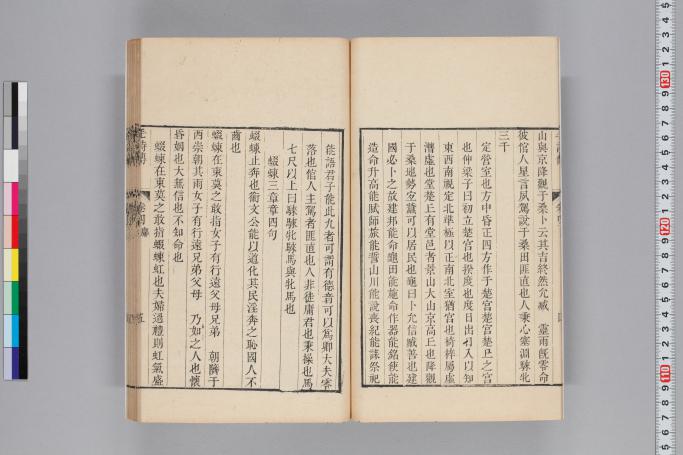 山與京降觀于桑卜云其吉終然允臧 靈雨既零命
彼倌人星言夙駕說于桑田匪直也人秉心塞淵騋牝
三千
定營室也方中昏正四方作于楚宮楚宮楚丘之宮
也仲梁子曰初立楚宮也揆度也度日出日入以知
東西南視定北準極以正南北室猶宮也椅梓屬虛
漕虛也堂楚丘有堂邑者景山大山京高丘也降觀
于桑地勢宜蠶可以居民也龜曰卜允信臧善也建
國必卜之故建邦能命龜田能施命作器能銘使能
造命升高能賦師旅能誓山川能說喪紀能誄祭祀
能語君子能此九者可謂有德音可以爲卿大夫零
落也倌人主駕者匪直也人非徒庸君也秉操也馬
七尺以上曰騋騋牝騋馬與牝馬也
蝃蝀三章章四句
蝃蝀止奔也衛文公能以道化其民淫奔之恥國人不
齒也
蝃蝀在東莫之敢指女子有行遠父母兄弟 朝隮于
西崇朝其雨女子有行遠兄弟父母 乃如之人也懷
昏姻也大無信也不知命也
蝃蝀在東莫之敢指蝃蝀虹也夫婦過禮則虹氣盛